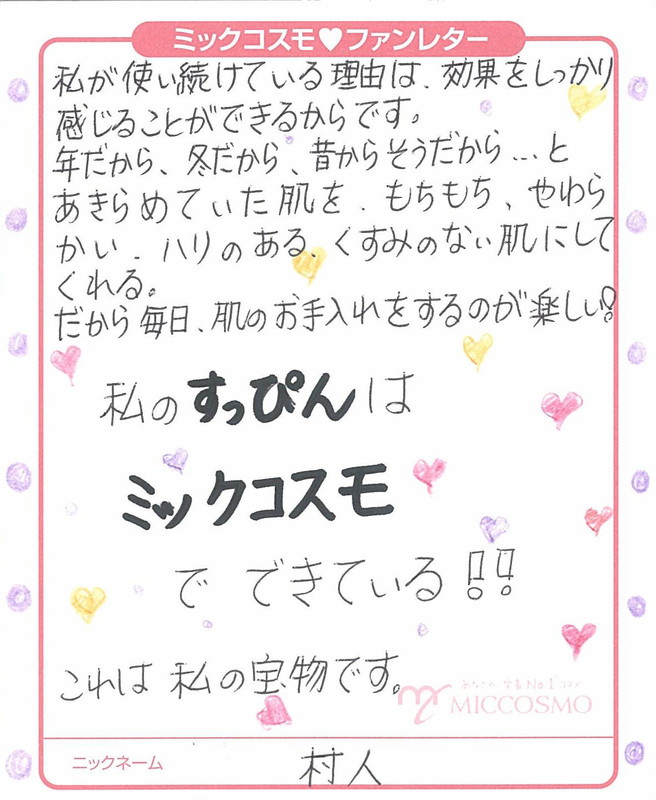 ミックコスモ♥ファンレター
私が使い続けている理由は、効果をしっかり
感じることができるからです。
年だから、冬だから、昔からそうだから…と
あきらめていた肌を、もちもち、やわら
かい、ハリのある、くすみのない肌にして
くれる。
だから毎日、肌のお手入れをするのが楽しい!
私のすっぴんは
ミックコスモ
でできている!!
これは私の宝物です。
あなたの 愛着No.1コスメ
MICCOSMO
ニックネーム
村人